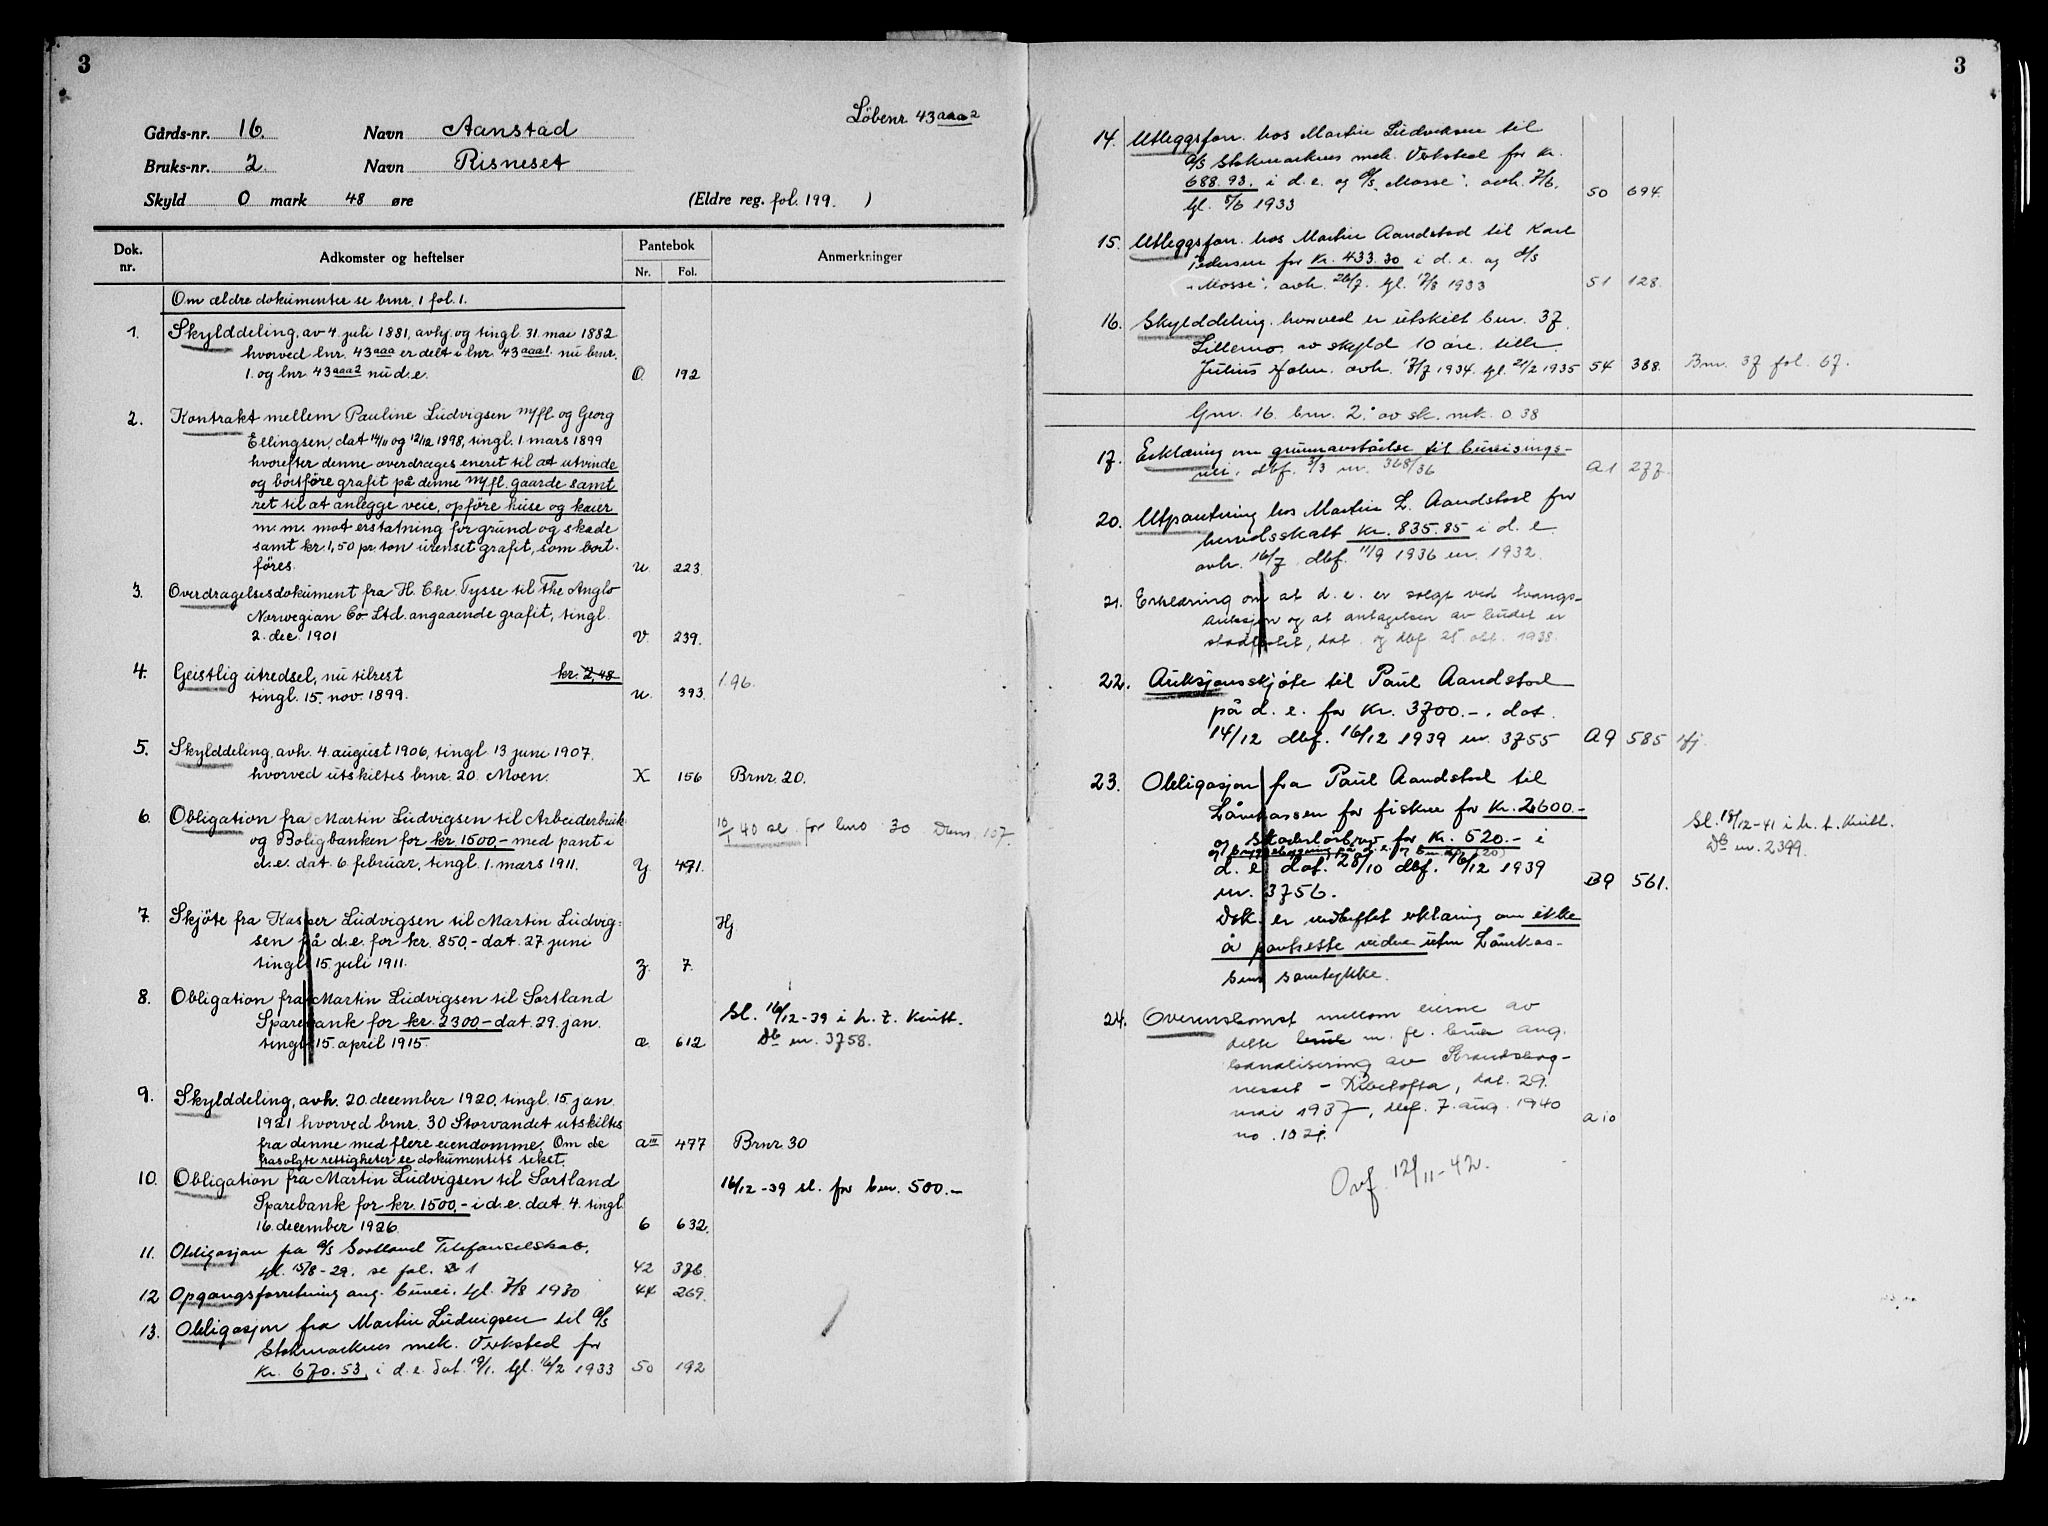 3
Löbenr 43aaa2
Gårds-nr. 16. Navn Aanstad
Bruks-nr. 2 Navn Risneset
Skyld 0 mark 48 øre (Eldre reg. fol. 199. )
Dok. nr. Adkomster og heftelser Pantebok Anmerkninger
Nr. Fol.
Om ældre dokumenter se brnr. 1 fol. 1.
1. Skylddeling, av 4. juli 1881, avhj. og tingl. 31. mai 1882
hvorved lnr. 43aaa er delt i lnr. 43aaa1. nu brnr.
1. og lnr. 43aaa2 nu d.e. O. 192
2. Kontrakt mellem Pauline Ludvigsen m/fl. og Georg
Ellingsen, dat 14/11 og 12/12 1898, tingl. 1 mars 1899
hvorefter denne overdrages eneret til at utvinde
og bortföre grafit på denne m/fl. gaarde samt
ret til at anlegge veie, opföre huse og kaier
m.m. mot erstatning for grund og skade
samt kr. 1,50 pr ton urenset grafit, som bort-
föres. u. 223.
3. Overdragelsesdokument fra H. Chr. Tysse til The Anglo
Norwegian Co Ltd. angaaende grafit, tingl.
2. dec. 1901 V. 239.
4. Geistlig utredsel, nu tilrest kr. 2,48
tingl. 15. nov. 1899. u. 393. 1.96.
5. Skylddeling, avh. 4. august 1906, tingl. 13 juni 1907.
hvorved utskiltes brnr. 20. Moen. X 156 Brnr 20.
6. Obligation fra Martin Ludvigsen til Arbeiderbruk
og Boligbanken for kr. 1500,- med pant i
d.e. dat. 6. februar, tingl. 1. mars 1911. Y. 471.
7. Skjöte fra Kasper Ludvigsen til Martin Ludvig-
sen på d.e. for kr. 850,- dat. 27. juni
tingl. 15. juli 1911. Z. 7. Hj
8. Obligation fra Martin Ludvigsen til Sortland
Sparebank for kr. 2300- dat. 29. jan.
tingl. 15. april 1915. æ. 612
Sl. 16/12-39 i h. t. kvitt.
Db nr. 3758.
9. Skylddeling, avh. 20. december 1920, tingl. 15. jan.
1921 hvorved brnr. 30 Storvandet utskiltes
fra denne med flere eiendomme. Om de
frasolgte rettigheter se dokumentets tekst. aIII 477 Brnr 30
10. Obligation fra Martin Ludvigsen til Sortland
Sparebank for kr. 1500,- i d.e. dat. 4. tingl.
16. december 1926. 6 632. 16/12-39 sl. for bnr. 500.-
11. Obligasjon fra A/S Sortland Telefonselskab,
tgl. 15/8-29. se fol. 1 42 376
12 Opgangsforretning ang. buvei. tgl. 7/8 1930 44 269.
13. Obligasjon fra Martin Ludvigsen til A/S
Stokmarknes mek. Verksted for
kr. 670.53. i d.e. dat. 19/1. tgl. 16/2 1933 50 192
3
14. Utleggsforr. hos Martin Ludviksen til
A/S Stokmarknes mek. Verksted for kr.
688.93. i d.e. og "Mosse". avh. 7/6.
tgl. 8/6 1933 50 694.
15. Utleggsforr. hos Martin Aandstad til Karl
Pedersen for kr. 433.30 i d.e. og
"Mosse". avh. 26/7. tgl. 17/8 1933 51 128.
16. Skylddeling. hvorved er utskilt bnr. 37.
Lillemo. av skyld 10 øre. tilh.
Julius John. avh. 18/7 1934. tgl. 21/2 1935 54 388. Bnr. 37 fol. 67.
Gnr. 16 bnr. 2. av sk. mrk. 0 38
17. Erklæring om grunnavståelse til bureisings-
vei. dbf. 3/3 nr. 368/36 A1 277.
20. Utpantning hos Martin L. Aandstad for
herredsskatt kr. 835.85 i d.e.
avh. 16/7 dbf. 11/9 1936 nr. 1932.
21. Erklæring om at d.e. er solgt ved tvangs-
auksjon og at antagelsen av budet er
stadfestet, dat. og dbf. 25 okt. 1938.
22. Auksjonsskjøte til Paul Aandstad
på d.e. for kr. 3700.-. dat.
14/12 dbf. 16/12 1939 nr. 3755 A9 585 Hj.
23. Obligasjon fra Paul Aandstad til
Lånekassen for fiskere for kr. 2600.-
og skadesløsbrev for kr. 520.- i
d.e. dat. 28/10 dbf. 16/12 1939
nr. 3756. B9 561.
Sl. 18/12-41 i h. t. kvitt.
Db nr. 2399.
Dok. er vedheftet erklæring om ikke
å pantsette videre uten Lånekas-
sens samtykke.
24. Overenskomst mellom eierne av
dette bruk m. fl. bruk ang.
kanalisering av
nesset - dat. 29.
mai 1937, dbf. 7. aug. 1940
no. A 10
Ovf. 12/11-42.